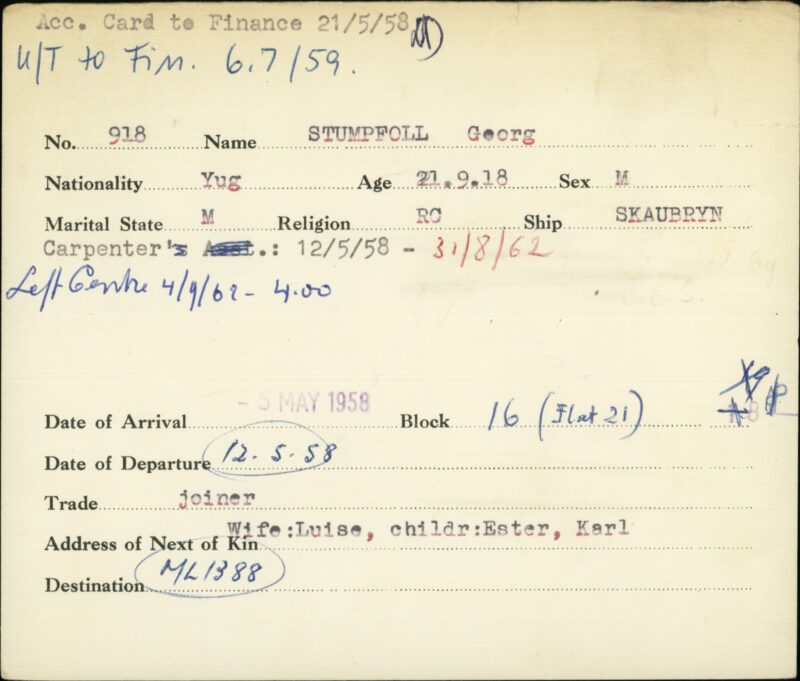 Acc. Card to Finance 21/5/58
U/T to Fin. 6.7/59.
No. 918 Name STUMPFOLL Georg
Nationality Yug Age 21.9.18 Sex M
Marital State M Religion RC Ship SKAUBRYN
Carpenter's Asst.: 12/5/58 - 31/8/62
Left Centre 4/9/62 - 4.00
Date of Arrival - 5 MAY 1958 Block 16 (Flat 21)
Date of Departure 12.5.58
Trade joiner
Wife:Luise, childr:Ester, Karl
Address of Next of Kin
Destination ML1388